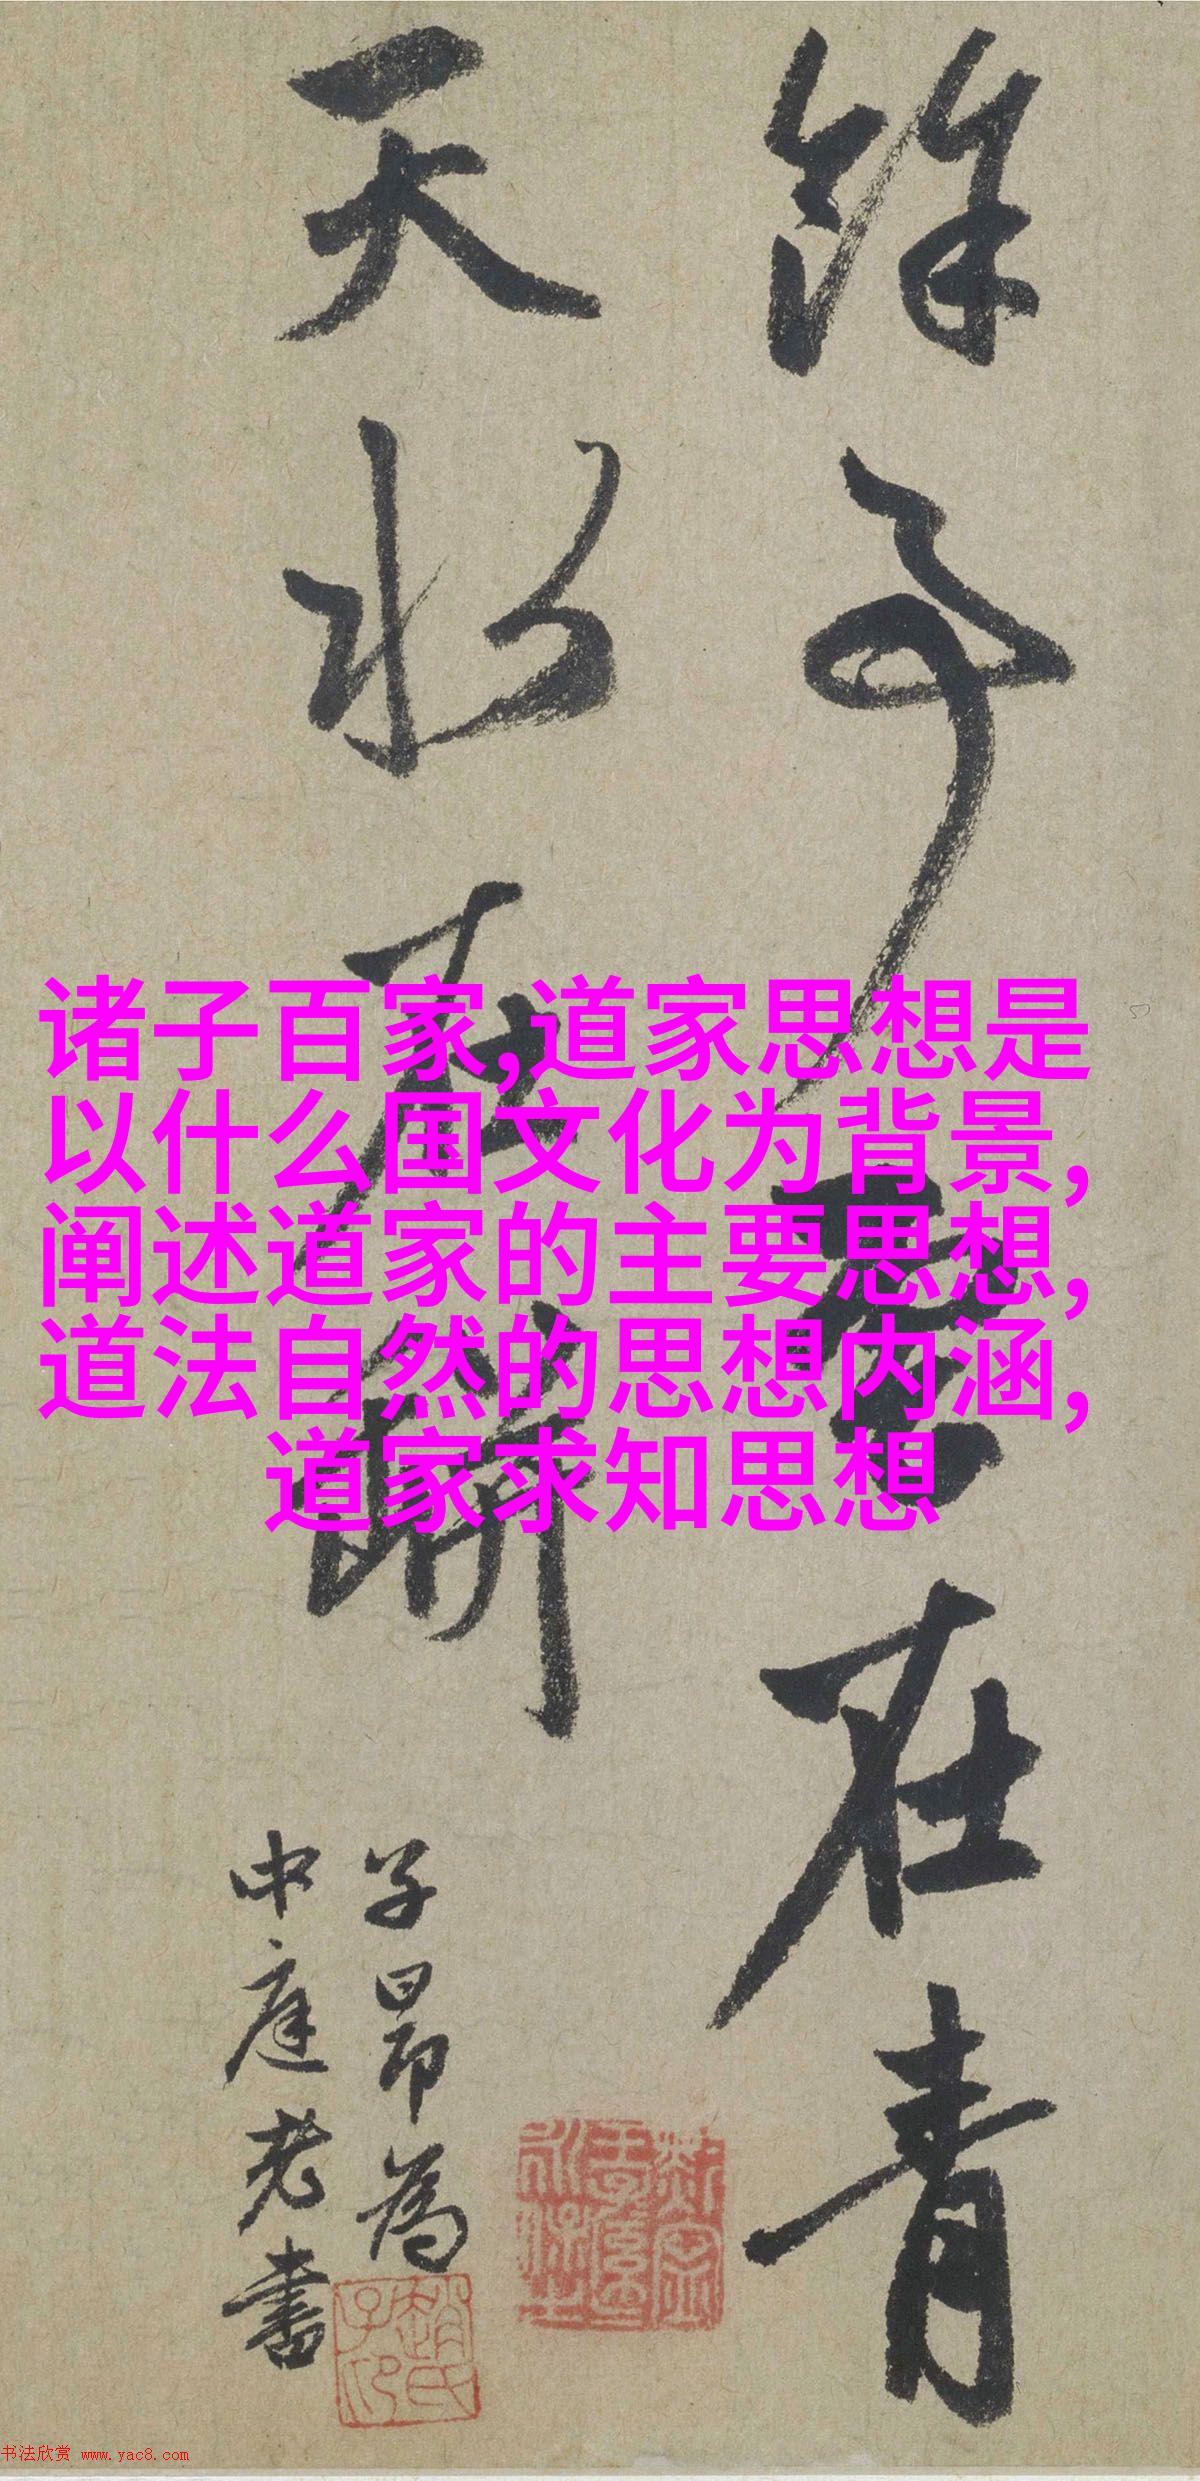 餘事雲在青
天水在缾
诸子百家,道家思想是
以什么国文化为背景,
阐述道家的主要思想,
道法自然的思想内涵,
道家求知思想
子昂為
中庭老書
趙氏子印
书法欣赏 www.yac8.com